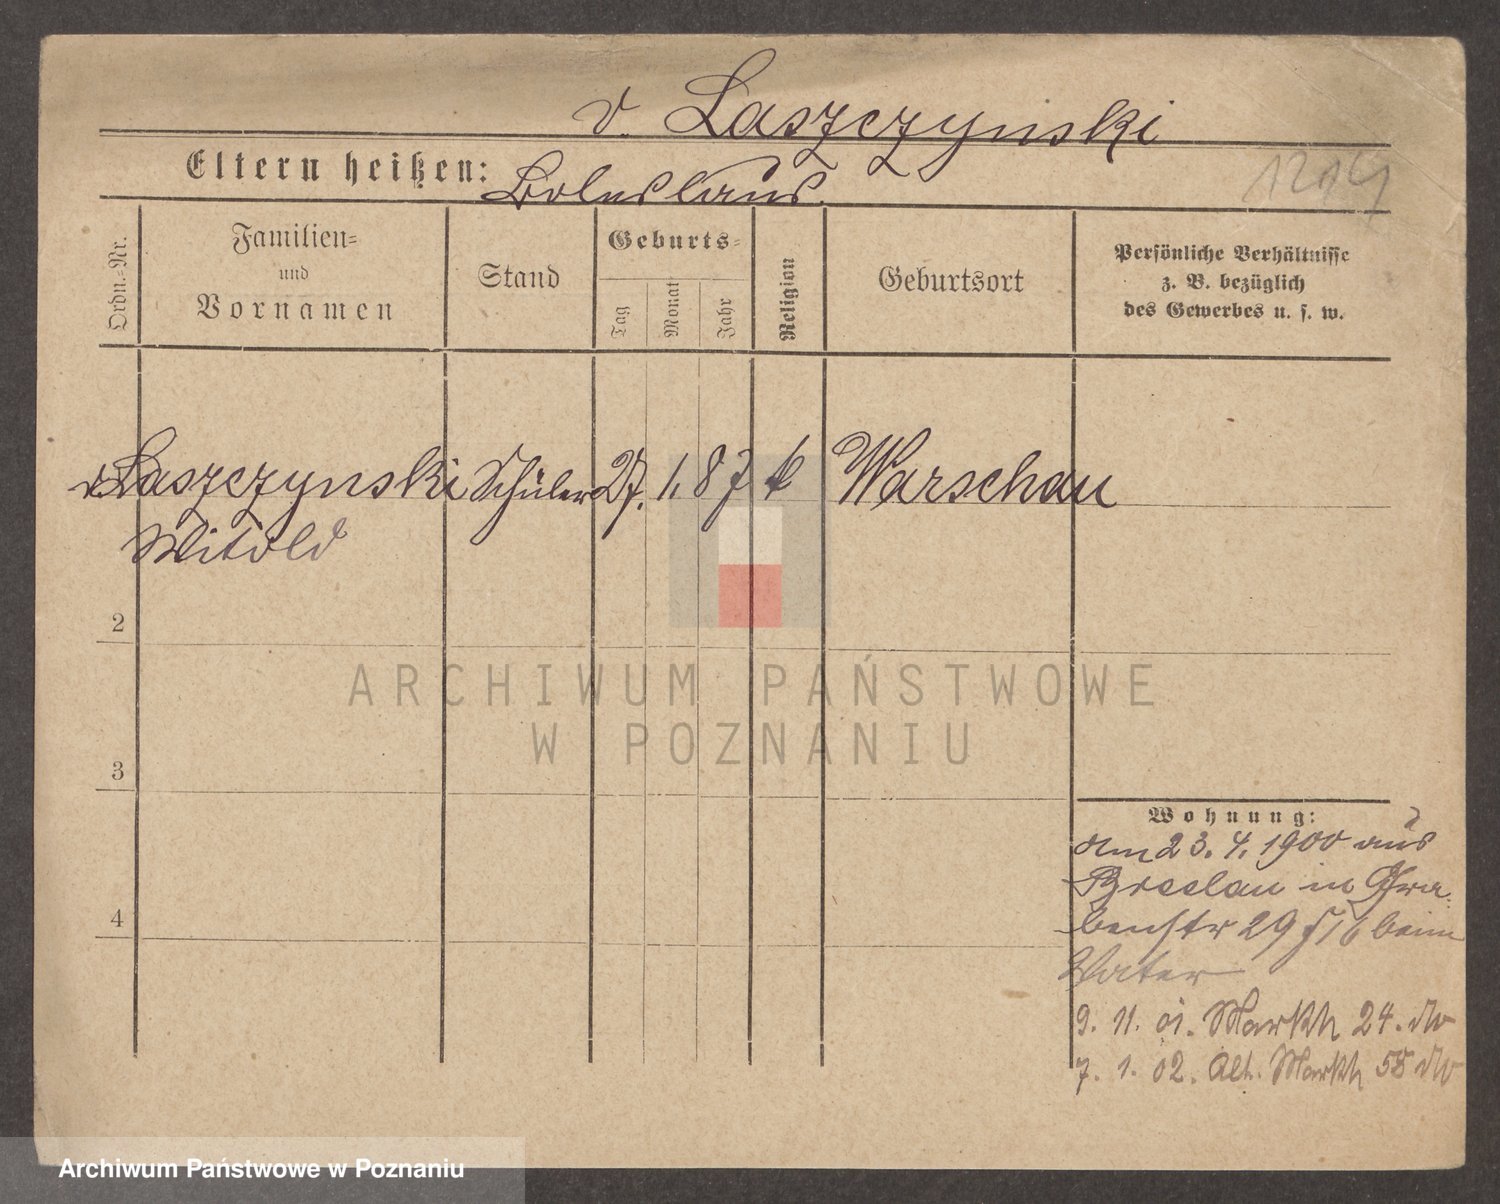 v. Laszczynski
Eltern heißen: Boleslaus.
1214
Ordn.-Nr.
Familien-
und
Vornamen
Stand
Geburts-
Tag
Monat
Jahr
Religion
Geburtsort
Persönliche Verhältnisse
z. B. bezüglich
des Gewerbes u. s. w.
v Laszczynski Schüler 27. 1. 87 k Warschau
Witold
2
ARCHIWUM PAŃSTWOWE
W POZNANIU
3
Wohnung:
am 23. 4. 1900 aus
Breslau in Gra-
4
benstr 29 beim
Vater
9. 11. 01. Markth 24. do
7. 1. 02. Alt. Markth 58 do
Archiwum Państwowe w Poznaniu